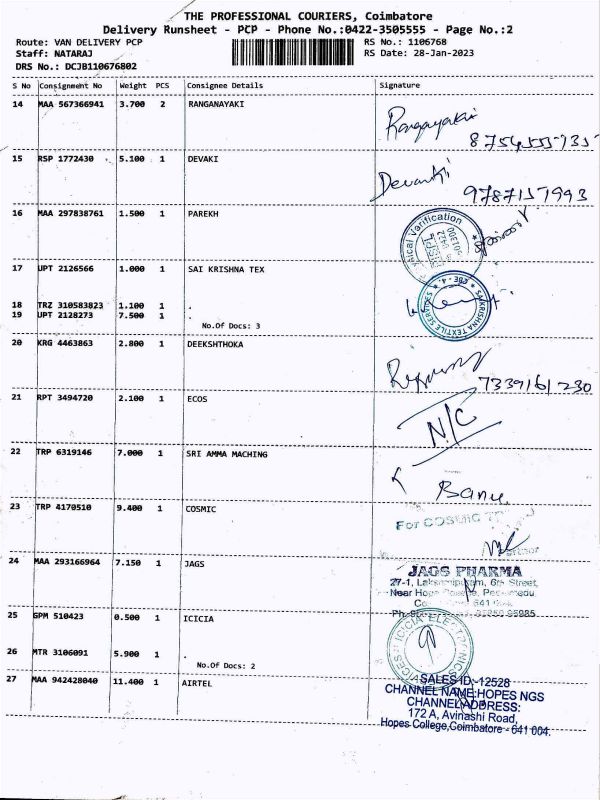 THE PROFESSIONAL COURIERS, Coimbatore
Delivery Runsheet - PCP - Phone No.:0422-3505555 - Page No.:2
Route: VAN DELIVERY PCP RS No.: 1106768
Staff: NATARAJ RS Date: 28-Jan-2023
DRS No.: DCJB110676802
S No Consignment No Weight PCS Consignee Details Signature
14 MAA 567366941 3.700 2 RANGANAYAKI Ranganayaki
8754555735
15 RSP 1772430 5.100 1 DEVAKI Devaki
9787157993
16 MAA 297838761 1.500 1 PAREKH
Verification
17 UPT 2126566 1.000 1 SAI KRISHNA TEX
18 TRZ 310583823 1.100 1 .
19 UPT 2128273 7.500 1 .
No.Of Docs: 3
SAI KRISHNA TEXTILE SERVICES * CBE - 4. *
20 KRG 4463863 2.800 1 DEEKSHTHOKA
7339161230
21 RPT 3494720 2.100 1 ECOS N/C
22 TRP 6319146 7.000 1 SRI AMMA MACHING
Banu
23 TRP 4170510 9.400 1 COSMIC For COSMIC
24 MAA 293166964 7.150 1 JAGS
JAGS PHARMA
27-1, 6th Street,
Near Hope
641
25 GPM 510423 0.500 1 ICICIA
ICICIA ELECTRONICS
26 MTR 3106091 5.900 1 .
No.Of Docs: 2
27 MAA 942428040 11.400 1 AIRTEL
SALES ID:-12528
CHANNEL NAME:HOPES NGS
CHANNEL ADDRESS:
172 A, Avinashi Road,
Hopes College,Coimbatore - 641 004.